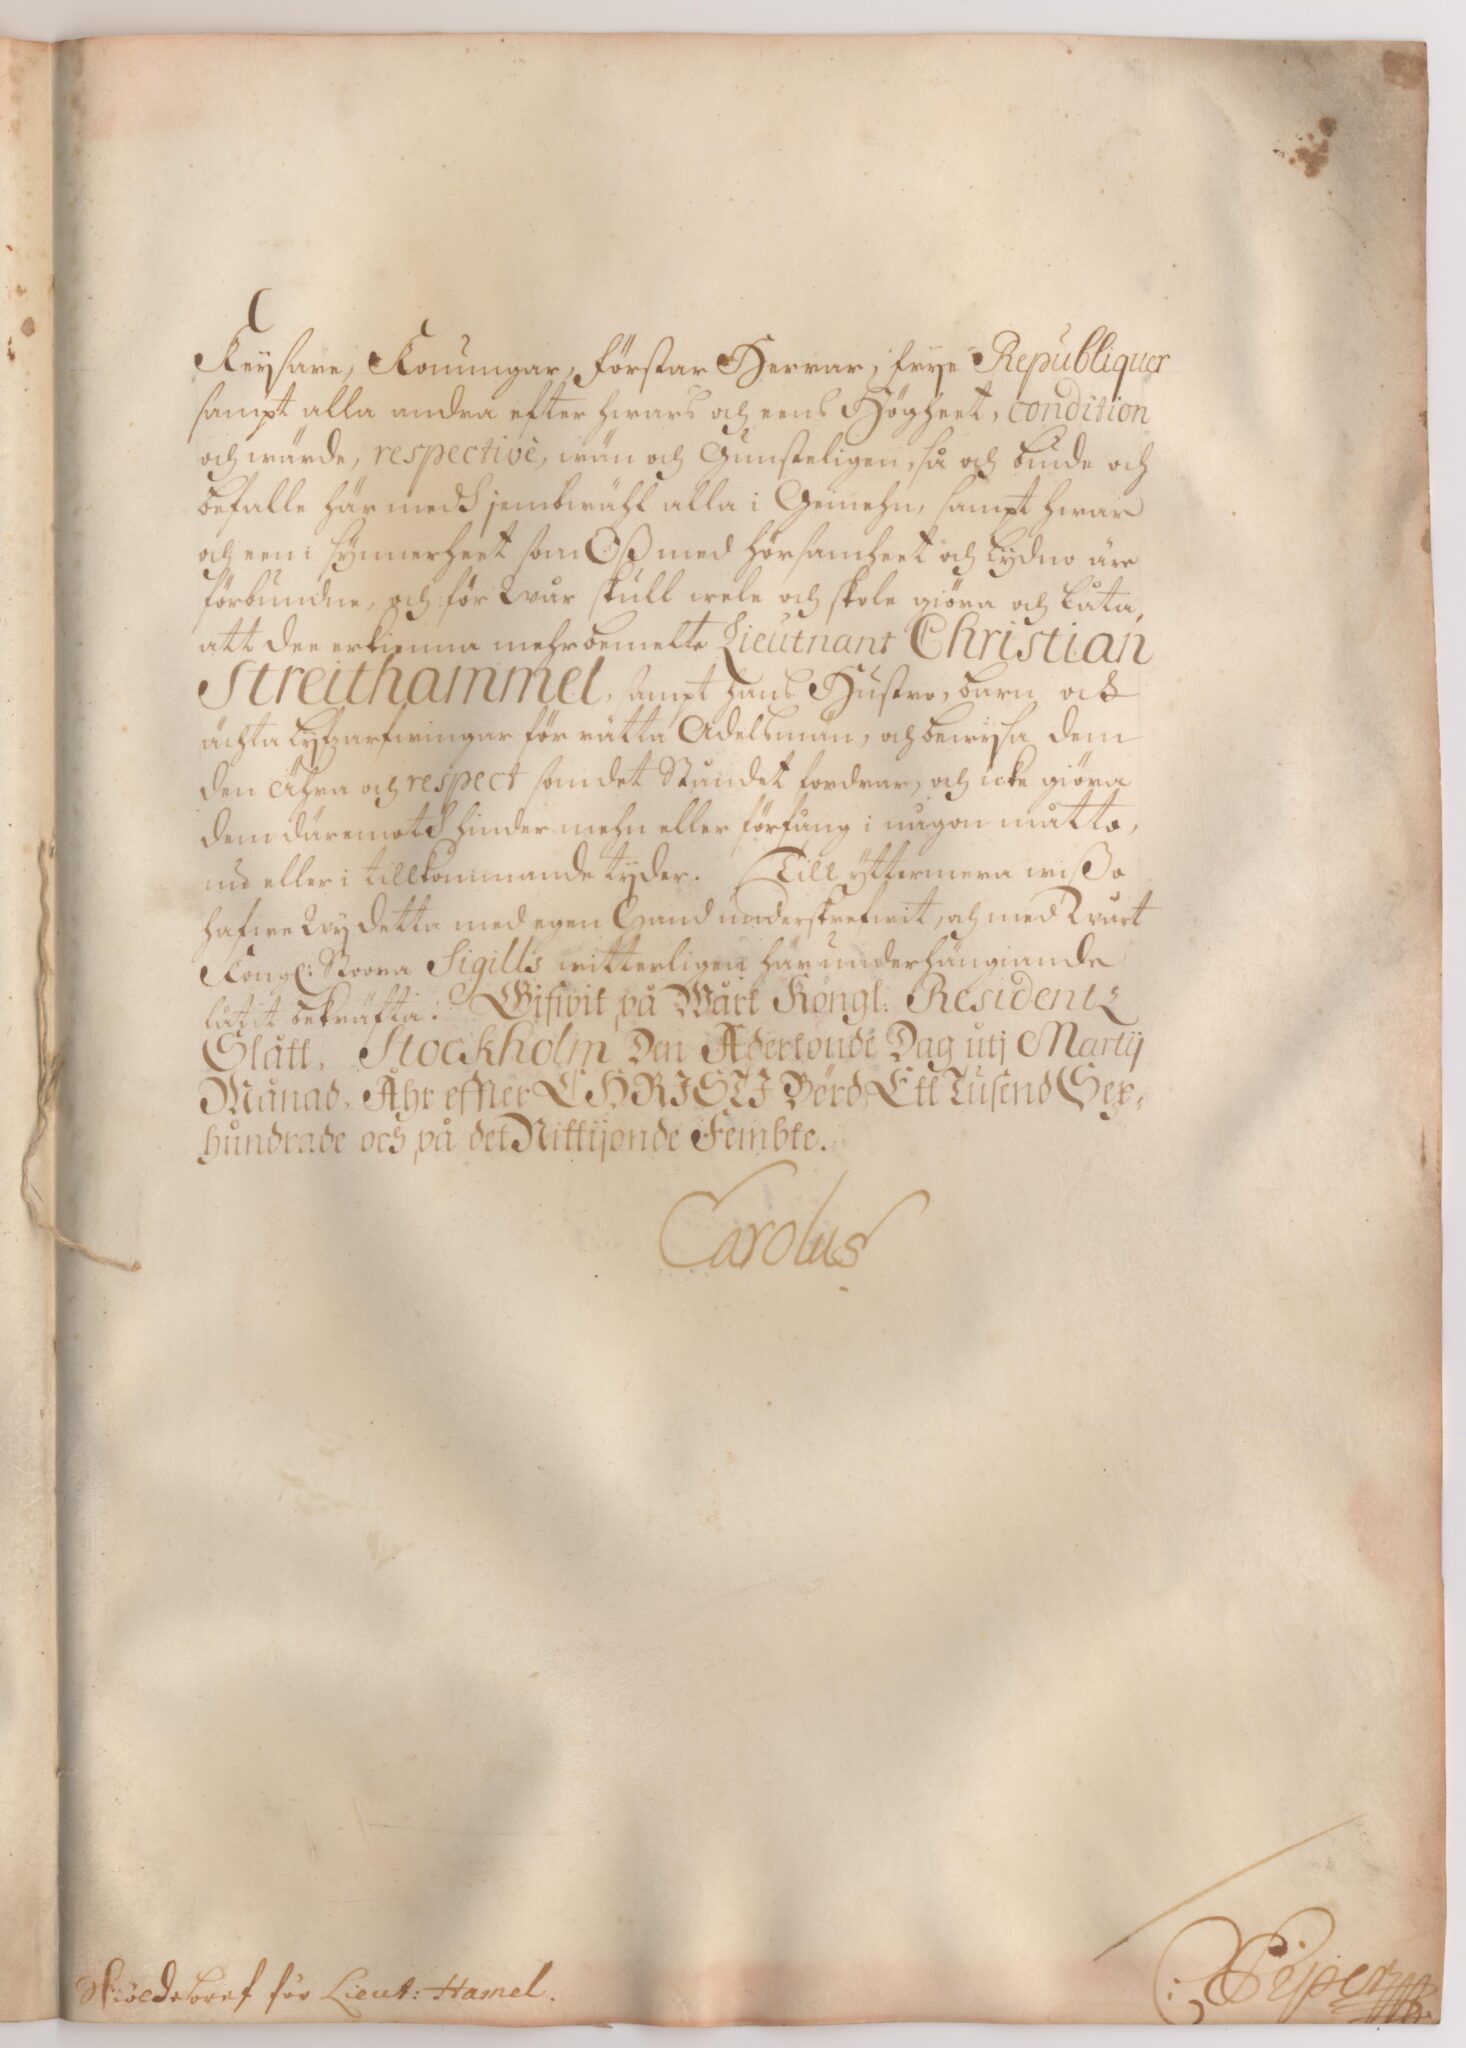 Keysare, Konungar, Förstar Herrar, frye Republiquer
sampt alla andra efter hwars och eens Högheet, condition
och wärde, respectivè, wän och Gunsteligen, så och biude och
befalle här medh jembwähl alla i Gemehn, sampt hwar
och een i synnerheet som Oß med hörsamheet och lydno äre
förbundne, och för Wår skull wele och skole giöra och låta,
att dee erkienna mehrbemelte Lieutnant Christian
Streithammel, sampt hans Hustro, barn och
ächta lyfzarfwingar för rätta Adelsmän, och bewysa dem
den Ähra och respect som det Ståndet fordrar, och icke giöra
dem däremoth hinder mehn eller förfång i någon måtto,
nu eller i tillkommande tyder. Till yttermera wißo
hafwe Wy detta med egen Hand underskrefwit, och med Wårt
Kongl: Stoora Sigills witterligen här underhängiande
låtit bekräfta. Gifwit på Wårt Kongl: Residentz
Slått, Stockholm Den Adertonde Dag utj Martij
Månad, Åhr effter CHRISTI Börd Ett Tusend Sex-
hundrade och på det Nittijonde Fembte.
Carolus
Skiöldebref för Lieut: Hamel.
C Piper